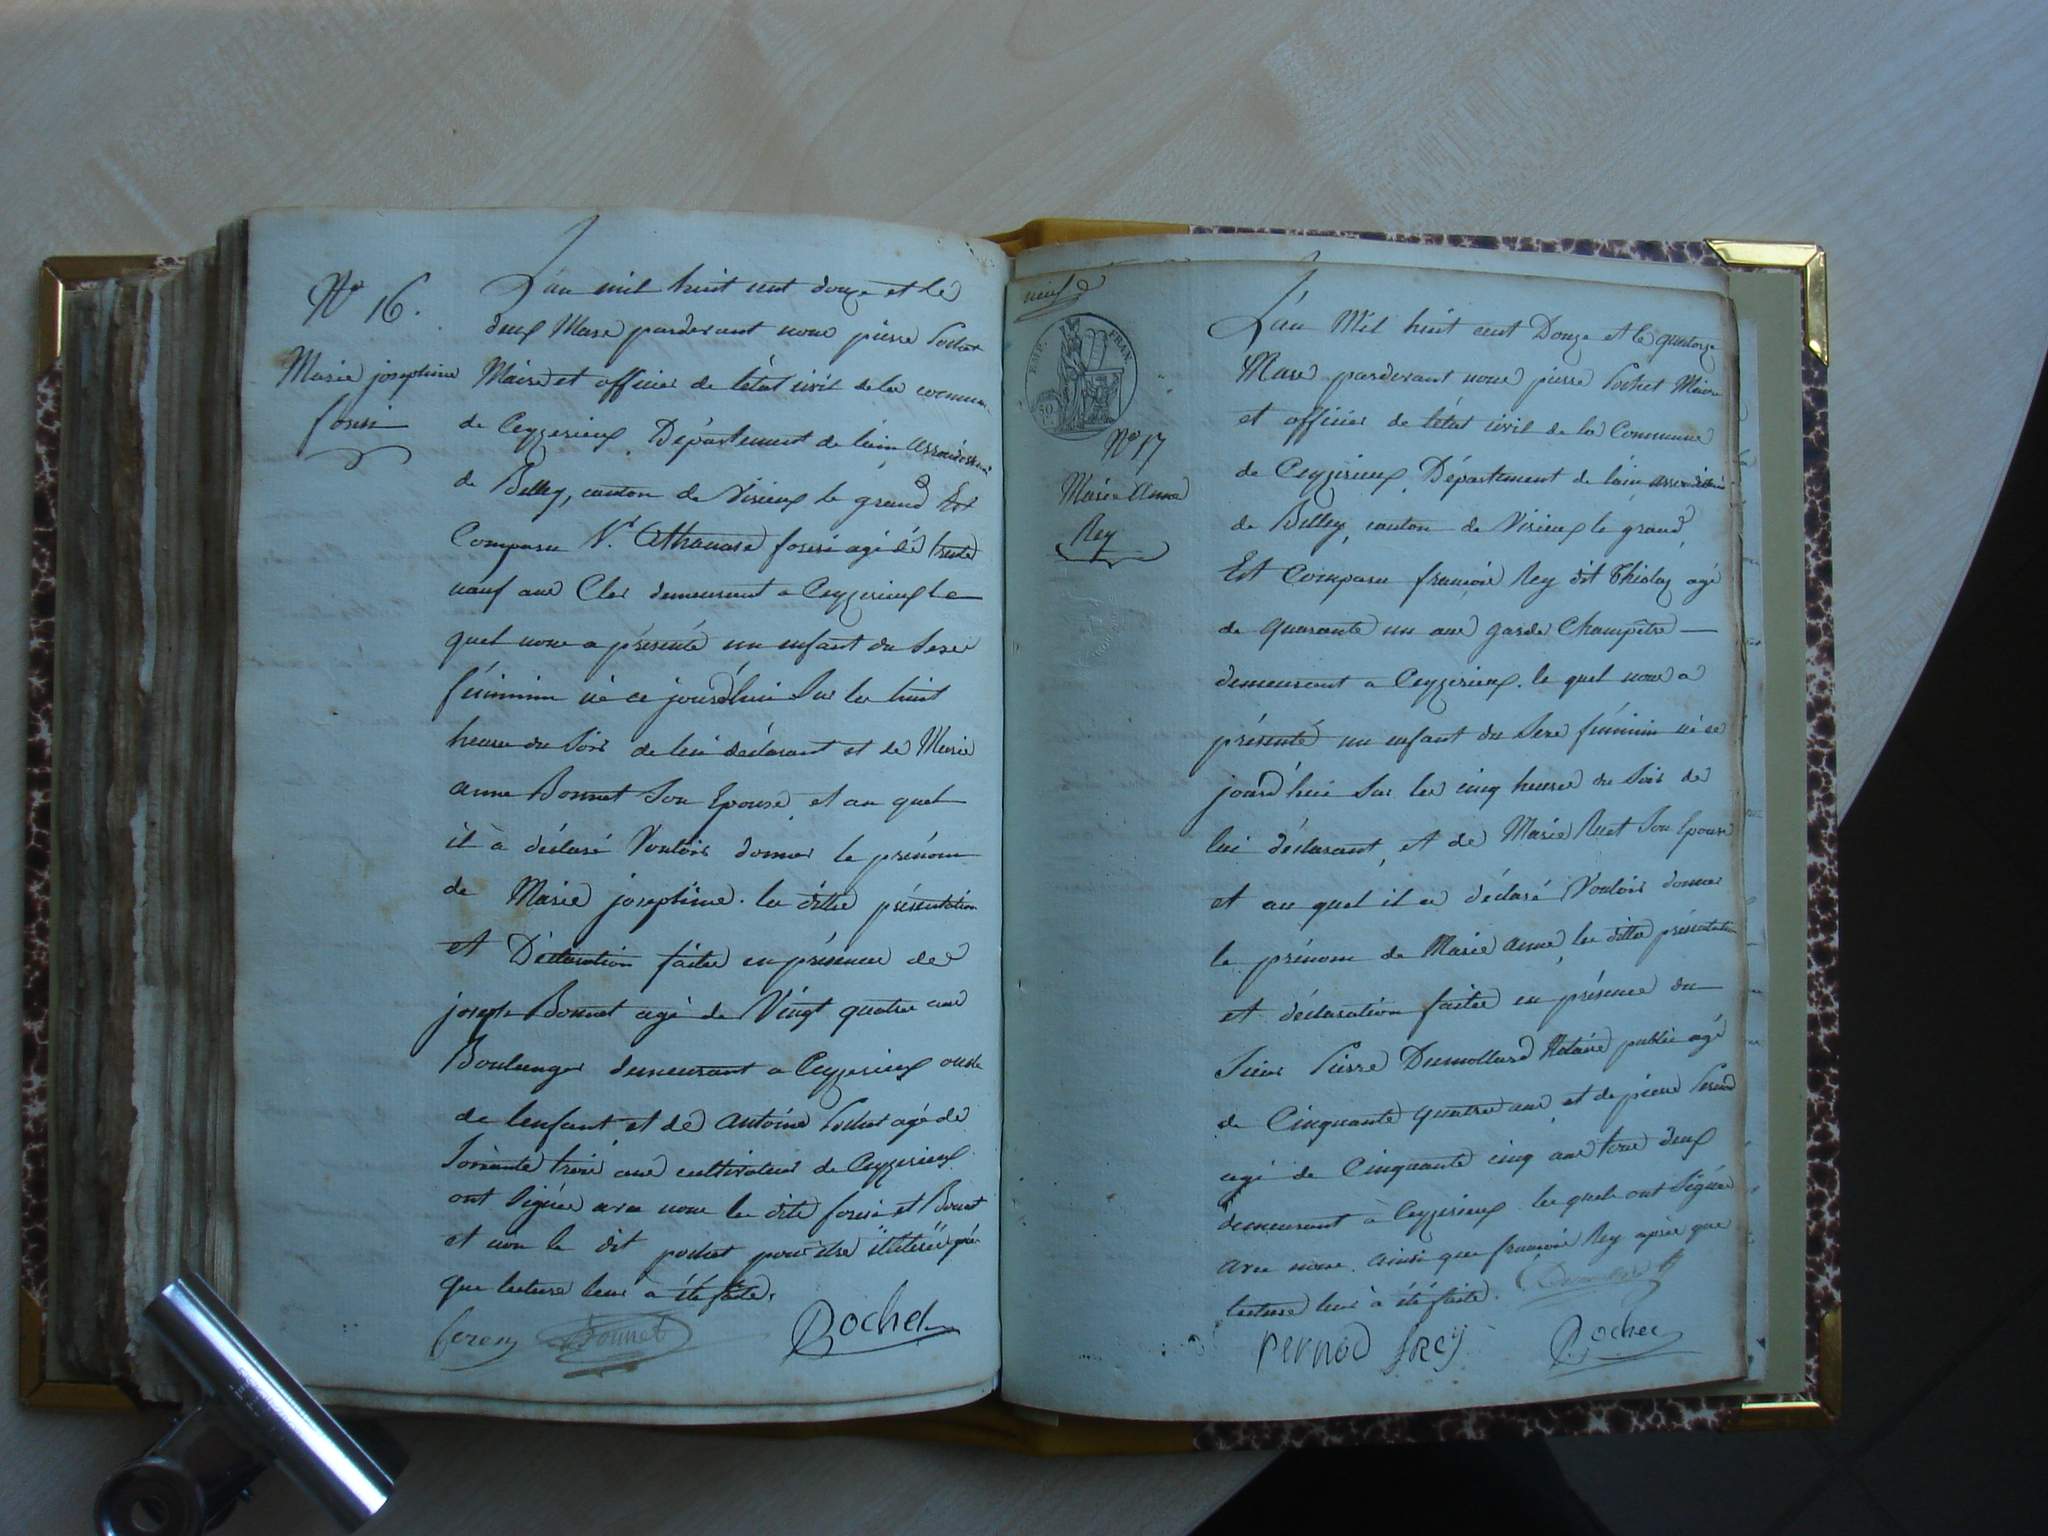 No 16.
Marie josephine
foreri
L'an mil huit cent douze et le
deux Mars pardevant nous pierre Pochet
Maire et officier de l'état civil de la commune
de Ceyzerieux, Département de l'ain arrondissement
de Belley, canton de Virieux le grand Est
Comparu Sr. Athanase foreri agé de trente
neuf ans demeurant a Ceyzerieux le
quel nous a présenté un enfant du Sexe
féminin né ce jourd'hui Sur les huit
heures du Soir de lui déclarant et de Marie
anne Bonnet Son Epouse, et au quel
il à déclaré Vouloir donner le prénom
de Marie josephine. la ditte présentation
et Déclaration faite en présence de
joseph Bonnet agé de Vingt quatre ans
Boulanger demeurant a Ceyzerieux oncle
de l'enfant et de antoine Pochet agé de
Soixante trois ans cultivateur de Ceyzerieux
ont Signés avec nous le dit foreri et Bonnet
et non le dit pochet pour être illiteré
que lecture leur a été faite.
Bonnet
Pochet
neuf
EMP. FRAN.
50
No 17
Marie anne
Rey
L'an Mil huit cent Douze et le quatorze
Mars pardevant nous pierre Pochet Maire
et officier de l'état civil de la Commune
de Ceyzerieux, Département de l'ain arrondissement
de Belley, canton de Virieux le grand,
Est Comparu françois Rey dit Thislay agé
de quarante un ans garde Champêtre
demeurant a Ceyzerieux. le quel nous a
présenté un enfant du Sexe féminin né ce
jourd'hui Sur les cinq heures du Soir de
lui déclarant, et de Marie Ruet Son Epouse
et au quel il a déclaré Vouloir donner
le prénom de Marie anne, la ditte présentation
et déclaration faite en présence du
Sieur Pierre Dumollard Notaire public agé
de Cinquante quatre ans, et de pierre Pernod
agé de Cinquante cinq ans tous deux
demeurant à Ceyzerieux les quels ont Signés
avec nous ainsi que françois Rey après que
lecture leur à été faite.
Pernod frey
Pochet